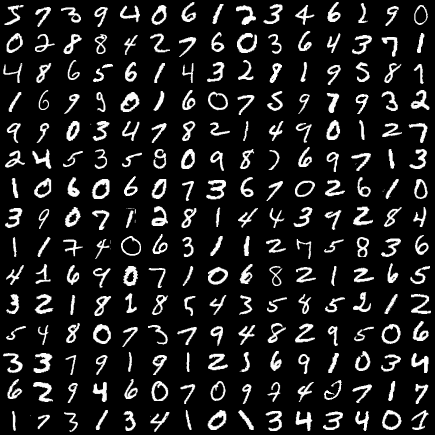 5 7 3 9 4 0 6 1 2 3 4 6 1 9 0
0 2 8 8 4 2 7 6 0 3 6 4 3 7 1
4 8 6 5 6 1 4 3 2 8 1 9 5 8 1
1 6 9 9 0 1 6 0 7 5 9 7 9 3 2
9 9 0 3 4 7 8 2 1 4 9 0 1 2 7
2 4 5 3 5 8 0 9 8 7 6 9 7 1 3
1 0 6 0 6 0 7 3 6 7 0 2 6 1 0
3 9 0 7 1 2 8 1 4 4 3 9 2 8 4
1 1 7 4 0 6 3 1 1 2 7 5 8 3 6
4 1 6 9 0 7 1 0 6 8 2 1 2 6 5
3 2 1 8 1 8 5 4 3 5 8 5 2 1 2
5 4 8 0 7 3 7 9 4 8 2 9 5 0 6
3 3 7 9 1 9 1 2 5 6 9 1 0 3 4
6 2 9 4 6 0 7 0 9 7 4 2 7 1 7
1 7 3 1 3 4 1 0 1 3 4 3 4 0 1